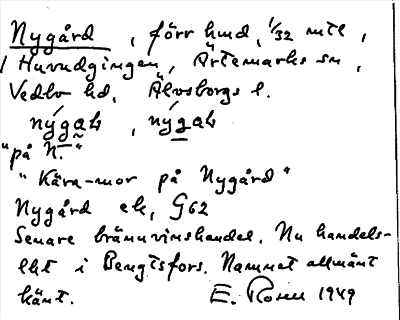 Nygård, förr hmd, 1/32 mtl,
i Huvudgingen, Ärtemarks sn,
Vedbo hd, Älvsborgs l.
nýgaʟ, nýgaʟ
"på N."
"Kära-mor på Nygård"
Nygård ek, G62
Senare brännvinshandel. Nu handels-
lht i Bengtsfors. Namnet allmänt
känt. E. Rosen 1949